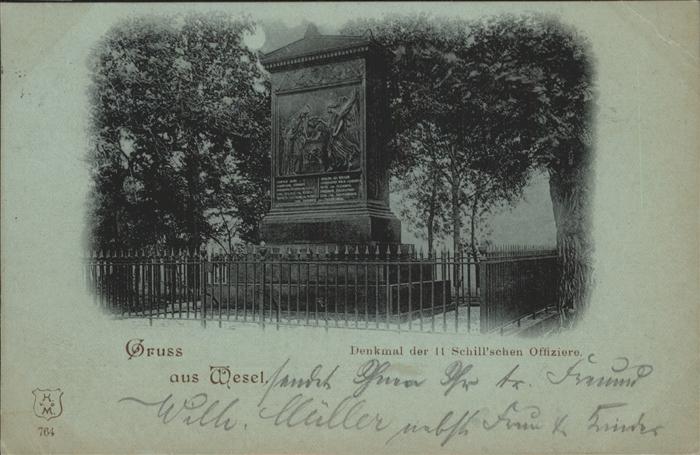 Gruss
aus Wesel.
Denkmal der 11 Schill'schen Offiziere.
sendet Ihnen Ihr tr. Freund
Wilh. Müller nebst Frau & Kinder
H. M.
764